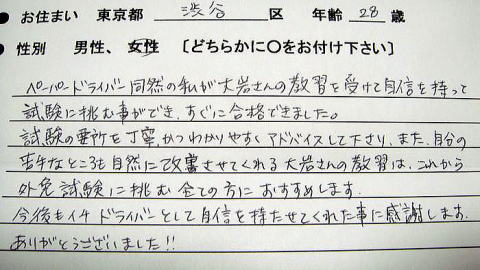 ● お住まい 東京都 渋谷 区 年齢 28 歳
● 性別 男性、女性 〔どちらかに〇をお付け下さい〕
ペーパードライバー同然の私が大岩さんの教習を受けて自信を持って
試験に挑む事ができ、すぐに合格できました。
試験の要所を丁寧かつわかりやすくアドバイスして下さり、また、自分の
苦手なところも自然に改善させてくれる大岩さんの教習は、これから
外免試験に挑む全ての方におすすめします。
今後もイチドライバーとして自信を持たせてくれた事に感謝します。
ありがとうございました!!